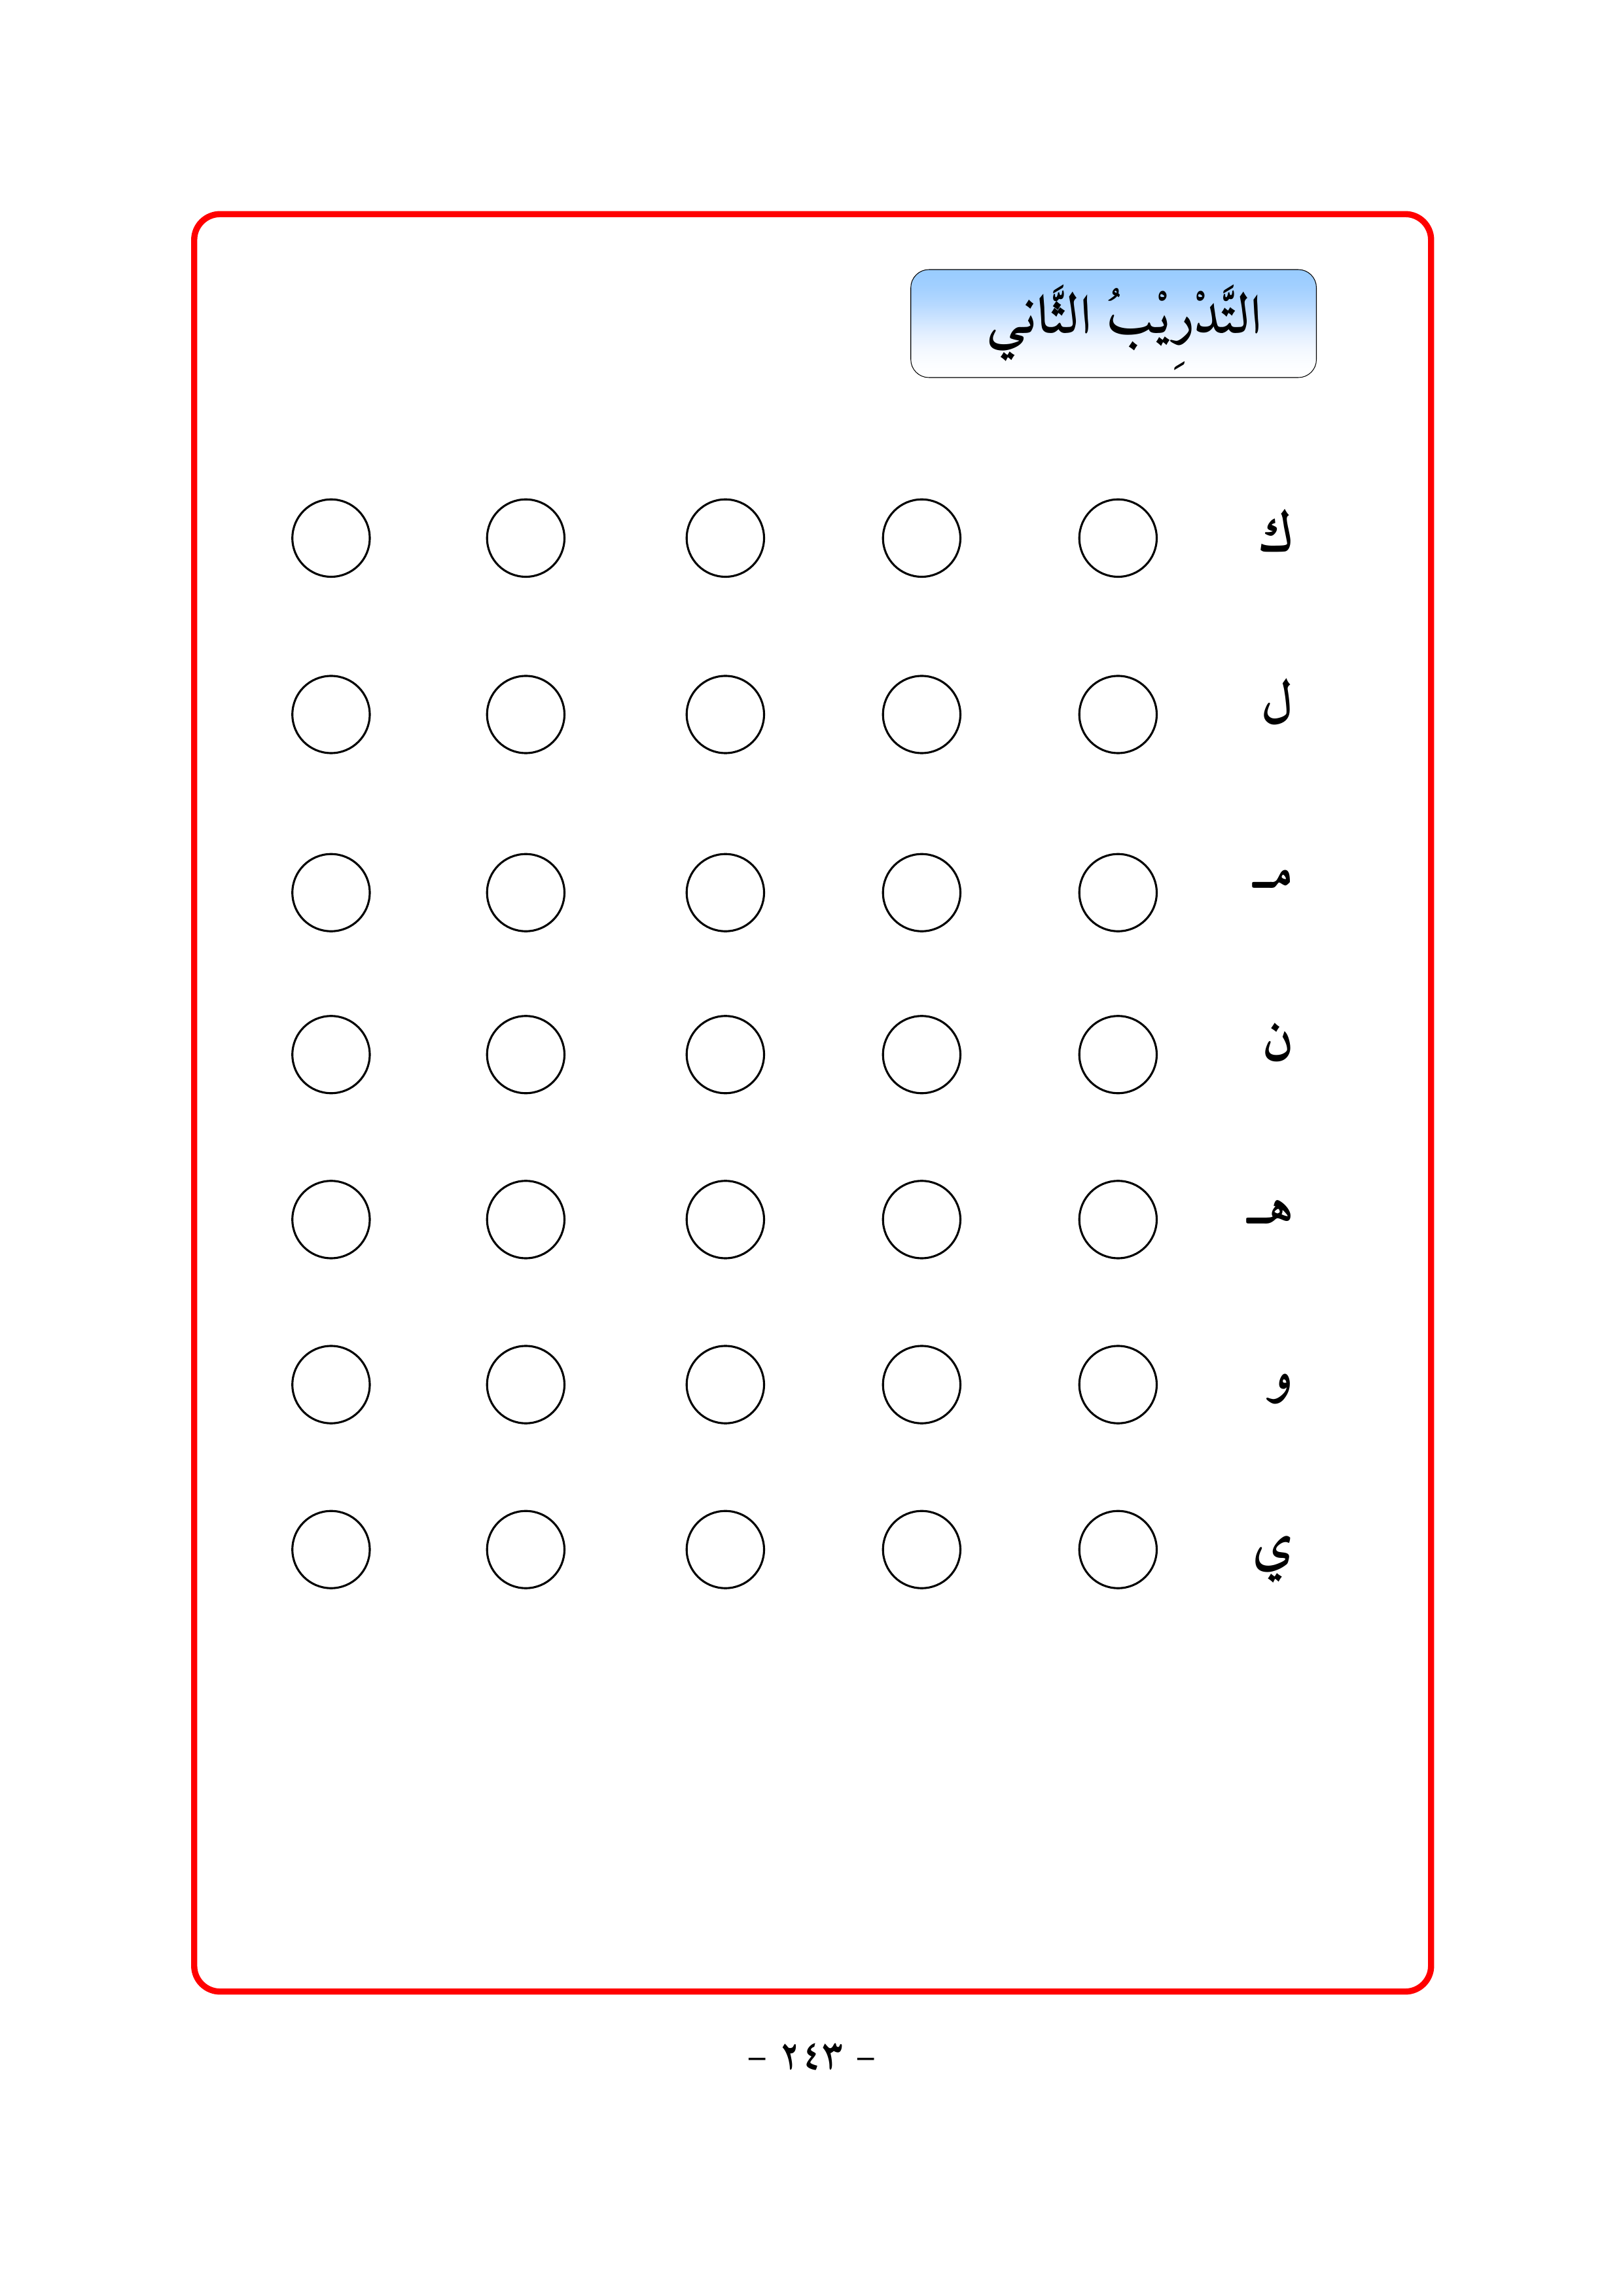 التَّدْرِيْبُ الثَّاني
ك
ل
مـ
ن
هـ
و
ي
– ٢٤٣ –